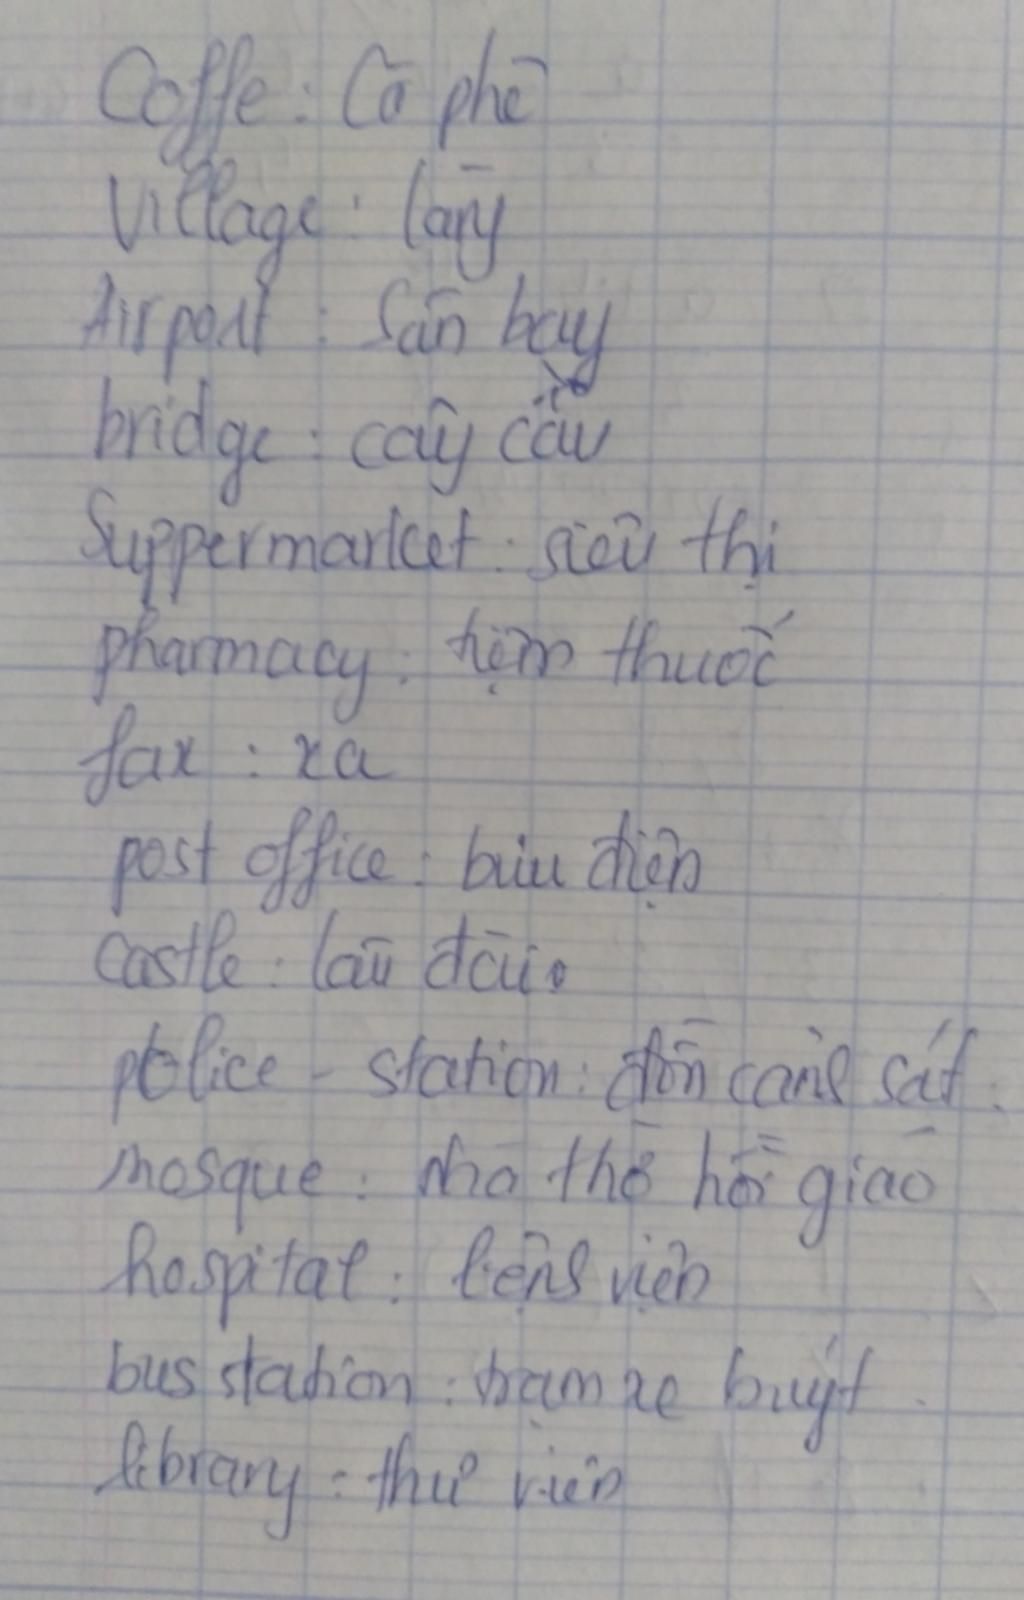 Coffe : Cà phê
Village : làng
Airport : Sân bay
bridge : cây cầu
Suppermarket : siêu thị
pharmacy : tiệm thuốc
fax : xa
post office : bưu điện
castle : lâu đài
police - station : đồn cảnh sát.
mosque : nhà thờ hồi giáo
hospital : bệnh viện
bus station : trạm xe buýt.
library : thư viện